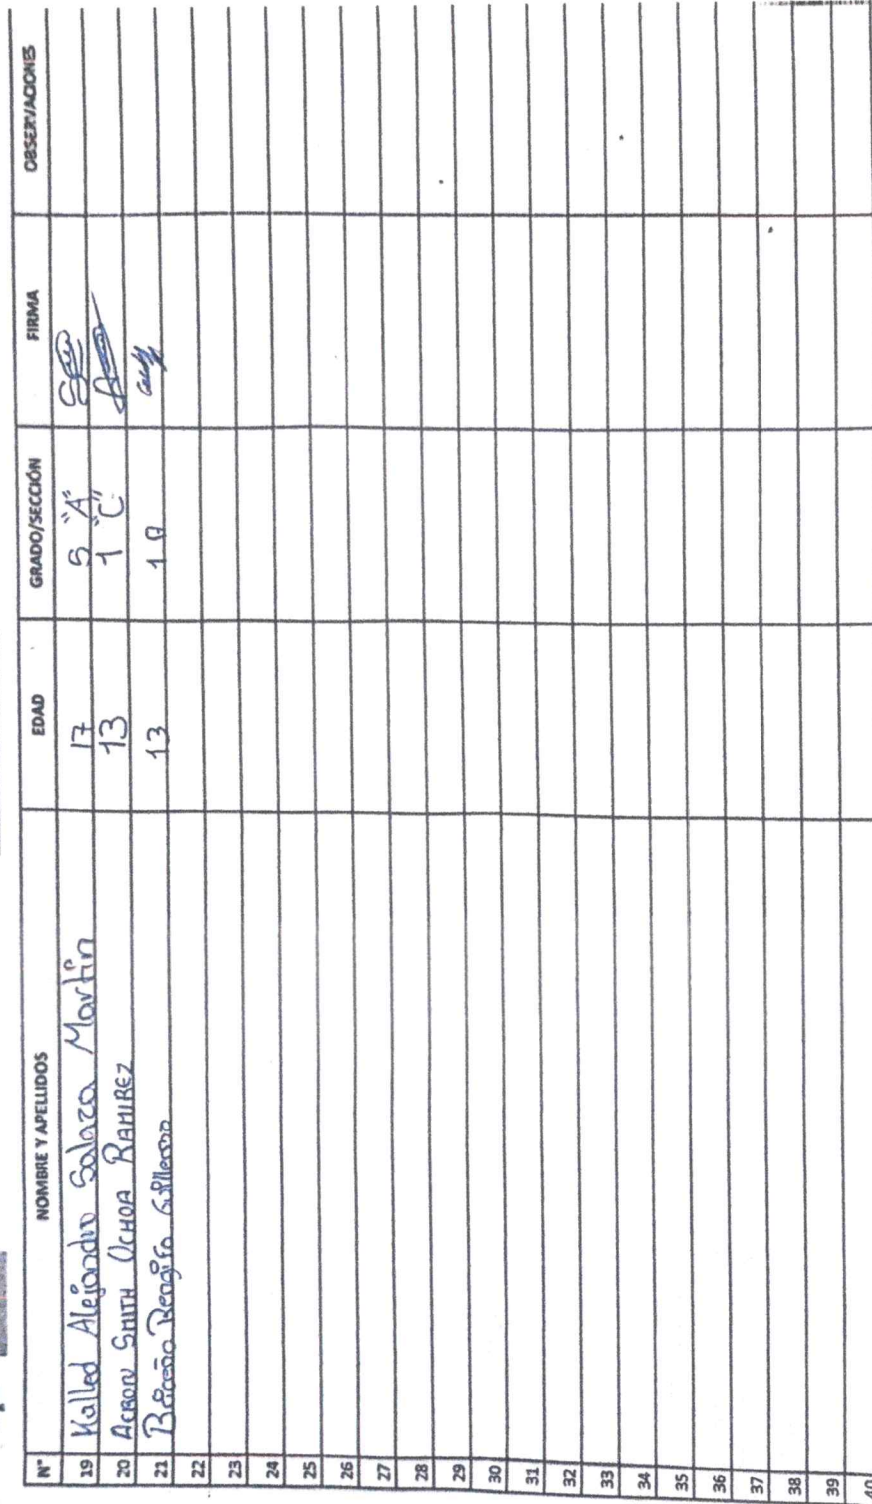 N° NOMBRE Y APELLIDOS EDAD GRADO/SECCIÓN FIRMA OBSERVACIONES
19 Kalled Alejandro Salaza Martin 17 5 "A"
20 SMITH OCHOA RAMIREZ 13 1 "C"
21 Briceño Rengifo Guillermo 13 1
22
23
24
25
26
27
28
29
30
31
32
33
34
35
36
37
38
39
40